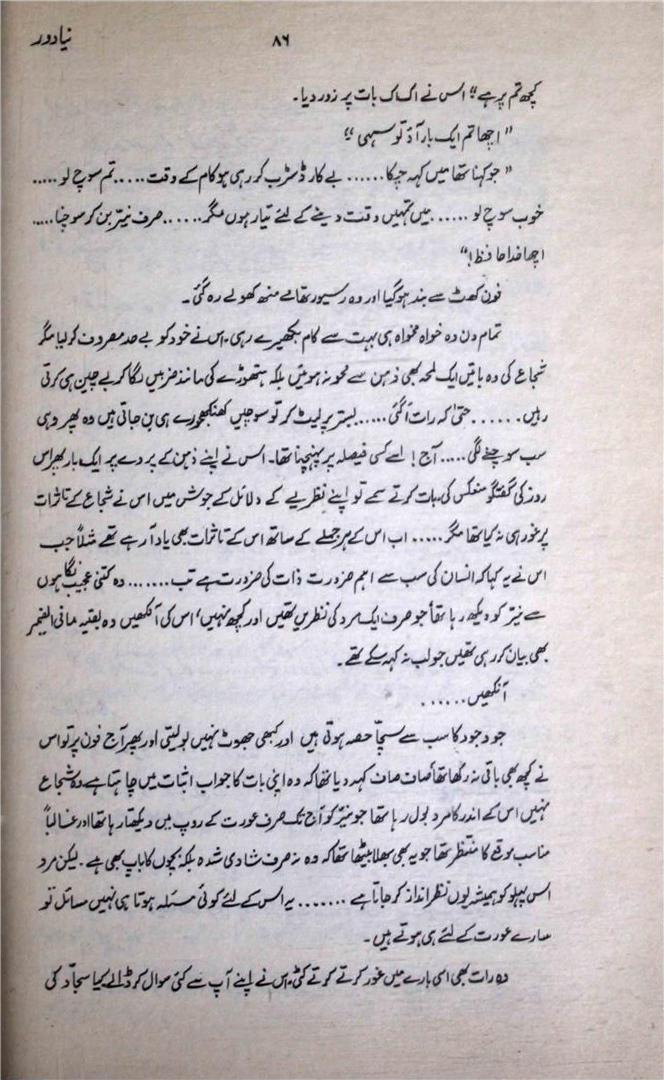 نیا دور ۸۶
کچھ تم پر ہے“ اس نے اک اک بات پر زور دیا۔
”اچھا تم ایک بار آؤ تو سہی“
”جو کہنا تھا میں کہہ چکا...... بے کار ڈسٹرب کر رہی ہو کام کے وقت..... تم سوچ لو.....
خوب سوچ لو ...... میں تمہیں وقت دینے کے لئے تیار ہوں مگر...... صرف نیّر بن کر سوچنا.....
اچھا خدا حافظ!“
فون کھٹ سے بند ہو گیا اور وہ رسیور تھامے منھ کھولے رہ گئی۔
تمام دن وہ خواہ مخواہ ہی بہت سے کام بکھیرے رہی۔ اس نے خود کو بے حد مصروف کر لیا مگر
شجاع کی وہ باتیں ایک لمحہ بھی ذہن سے محو نہ ہوئیں بلکہ ہتھوڑے کی مانند ضربیں لگا کر بے چین ہی کرتی
رہیں...... حتیٰ کہ رات آ گئی..... بستر پر لیٹ کر تو سوچیں کھنکھجورے ہی بن جاتی ہیں وہ پھر وہی
سب سوچنے لگی..... آج! اسے کسی فیصلہ پر پہنچنا تھا۔ اس نے اپنے ذہن کے پردے پر ایک بار پھر اس
روز کی گفتگو منعکس کی، بات کرتے سمے تو اپنے نظریے کے دلائل کے جوش میں اس نے شجاع کے تاثرات
پر غور ہی نہ کیا تھا مگر..... اب اس کے ہر جملے کے ساتھ اس کے تاثرات بھی یاد آ رہے تھے مثلاً جب
اس نے یہ کہا کہ انسان کی سب سے اہم ضرورت ذات کی ضرورت ہے تب....... وہ کتنی عجیب نگاہوں
سے نیّر کو دیکھ رہا تھا جو صرف ایک مرد کی نظریں تھیں اور کچھ نہیں، اس کی آنکھیں وہ بقیہ مافی الضمیر
بھی بیان کر رہی تھیں جو لب نہ کہہ سکے تھے۔
آنکھیں......
جو وجود کا سب سے سچّا حصہ ہوتی ہیں اور کبھی جھوٹ نہیں بولتی اور پھر آج فون پر تو اس
نے کچھ بھی باقی نہ رکھا تھا صاف صاف کہہ دیا تھا کہ وہ اپنی بات کا جواب اثبات میں چاہتا ہے وہ شجاع
نہیں اس کے اندر کا مرد بول رہا تھا جو نیّر کو آج تک صرف عورت کے روپ میں دیکھتا رہا تھا اور غالباً
مناسب موقع کا منتظر تھا جو یہ بھی بھلا بیٹھا تھا کہ وہ نہ صرف شادی شدہ بلکہ بچوں کا باپ بھی ہے۔ لیکن مرد
اس پہلو کو ہمیشہ یوں نظر انداز کر جاتا ہے ....... یہ اس کے لئے کوئی مسئلہ ہوتا ہی نہیں مسائل تو
سارے عورت کے لئے ہی ہوتے ہیں۔
وہ رات بھی اسی بارے میں غور کرتے کرتے کٹی۔ اس نے اپنے آپ سے کئی سوال کر ڈالے کیا سجّاد کی